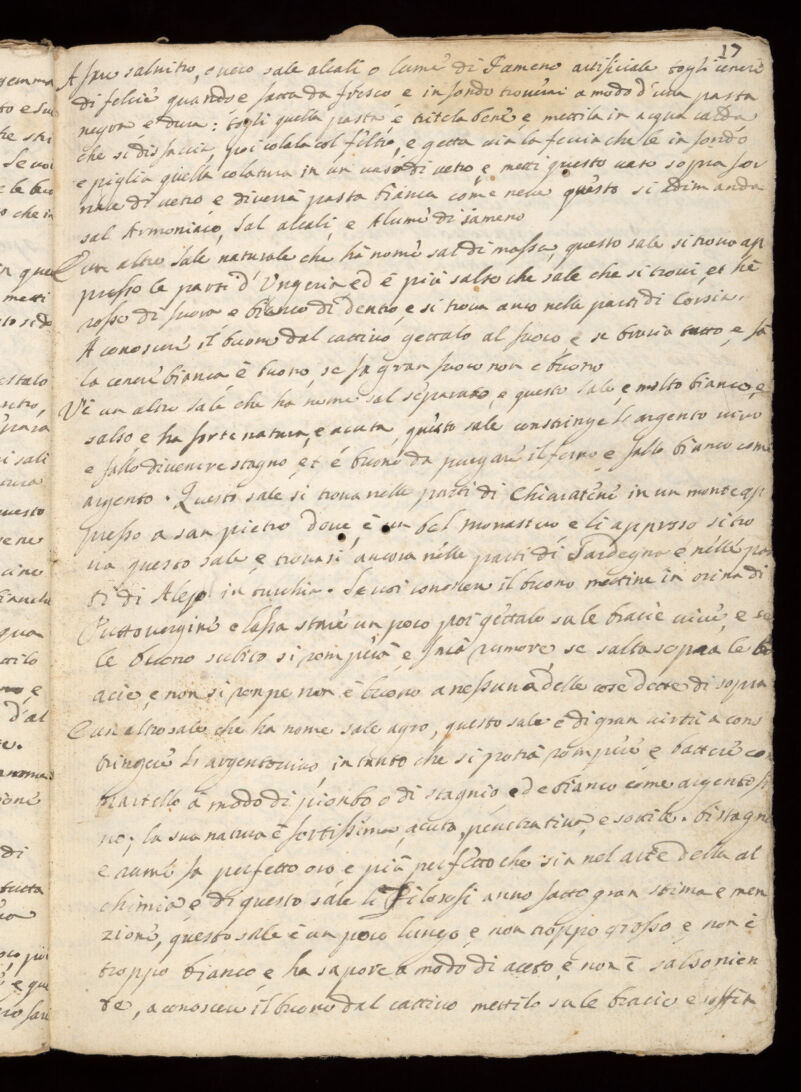 17
A fare salnitro, overo sale alcali o lume di Iameno artificiale togli cenere
di felcie quando e fatta da fresco e in fondo troverai a modo d'una pasta
negra e dura: togli quella pasta e tritela bene, e mettila in acqua calda
che si disfaccia, poi colala col filtro, e getta via la feccia che le in fondo
e piglia quella colatura in un vaso di vetro, e metti questo vaso sopra for
nale di vetro e diverrà pasta bianca come neve questo si dimanda
sal Armoniaco, sal alcali, e Alume di Iameno
E un altro sale naturale che hà nome sal di massa, questo sale si trova ap
presso le parti d'Ungeria ed è più salso che sale che si trovi, et hè
rosso di fuora e bianco di dentro, e si trova anco nelle parti di Corsica.
A conoscere il buono dal cattivo gettalo al fuoco e se brucia tutto, e fà
la cenere bianca è buono, se fa gran fuoco non è buono
Vi è un altro sale che ha nome sal separato, e questo sale, e molto bianco, e
salso e ha forte natura, e acuta, questo sale constringe l'argento vivo
e fallo divenire stagno, et è buono da purgare il ferro e fallo bianco come
argento. Questo sale si trova nelle parti di Chiaratene in un monte ap
presso a san pietro dove è un bel monastero e li appresso si tro
va questo sale, e trovasi ancora nelle parti di Sardegna e nelle par
ti di Alepo in turchia. Se voi conoscere il buono mettine in orina di
Putto vergine e lassa stare un poco poi gettalo su le bracie vive, e se
le buono subito si romperà, e farà rumore, se salta sopra le br
acie, e non si rompe non è buono a nessuna delle cose dette di sopra
E un altro sale che ha nome sale agro, questo sale è di gran virtù a cons
tringere l'argentovivo, in tanto che si potrà rompere e battere co
martello a modo di piombo o di stagnio, ed è bianco come argento fi
no; la sua natura è fortissima, acuta, penetrativa, e sottile. Di stagn
e rame fa perfetto oro e più perfetto che sia nel arte della al
chimia, e di questo sale li Filosofi anno fatto gran stima e men
zione, questo sale è un poco lungo e non troppo grosso e non è
troppo bianco, e ha sapore a modo di aceto, e non è salso nien
te, a conoscere il buono dal cattivo mettilo su le bracie e